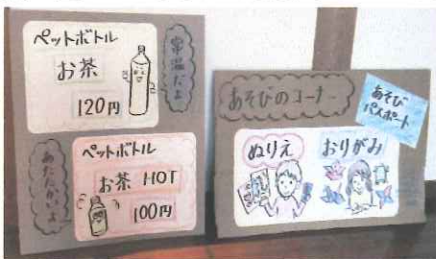 ペットボトル
お茶
120円
常温だよ
あたたかいよ
ペットボトル
お茶 HOT
100円
あそびのコーナー
あそび
パスポート
ぬりえ
おりがみ